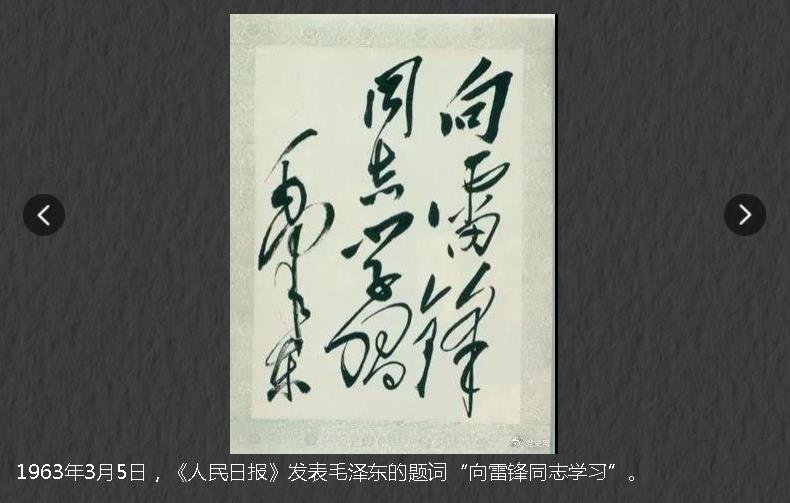 向雷锋
同志学习
毛泽东
1963年3月5日，《人民日报》发表毛泽东的题词“向雷锋同志学习”。